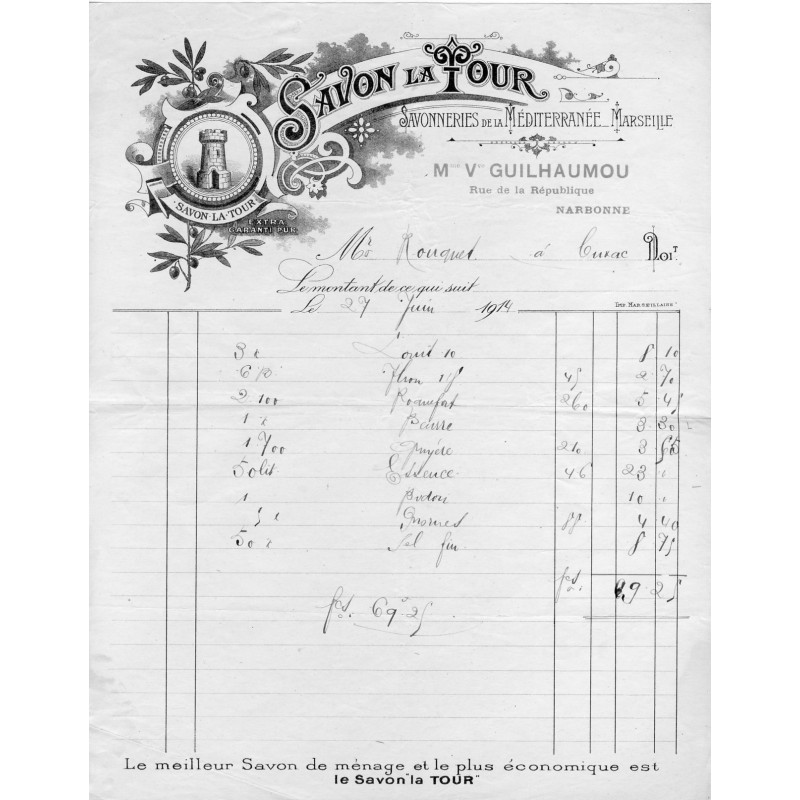 SAVON LA TOUR
SAVONNERIES DE LA MÉDITERRANÉE_MARSEILLE
Mme Vve GUILHAUMOU
Rue de la République
NARBONNE
SAVON·LA·TOUR
EXTRA
GARANTI PUR
Mr Rouquet à Cuxac DOIT
Le montant de ce qui suit
Le 27 Juin 1914
IMP. MARSEILLAISE
3 k 10 8 10
6 Thon 45 2 70
2 100 Roquefort 260 5 45
1 k Beurre 3 30
1 700 gruyère 210 3
50 lit. Essence 46 23 "
1 Bidon 10 "
5 k 88 4 40
50 k Sel fin 8 75
fcs. 69.25
fcs. 69.25
Le meilleur Savon de ménage et le plus économique est
le Savon "la TOUR"